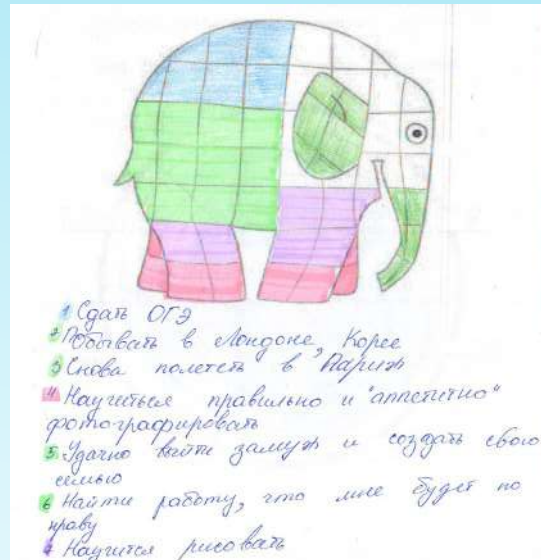 1 Сдать ОГЭ
2 Побывать в Лондоне, Корее
3 Снова полететь в Париж
4 Научиться правильно и "аппетитно"
фотографировать
5. Удачно выйти замуж и создать свою
семью
6 Найти работу, что мне будет по
нраву
7 Научится рисовать